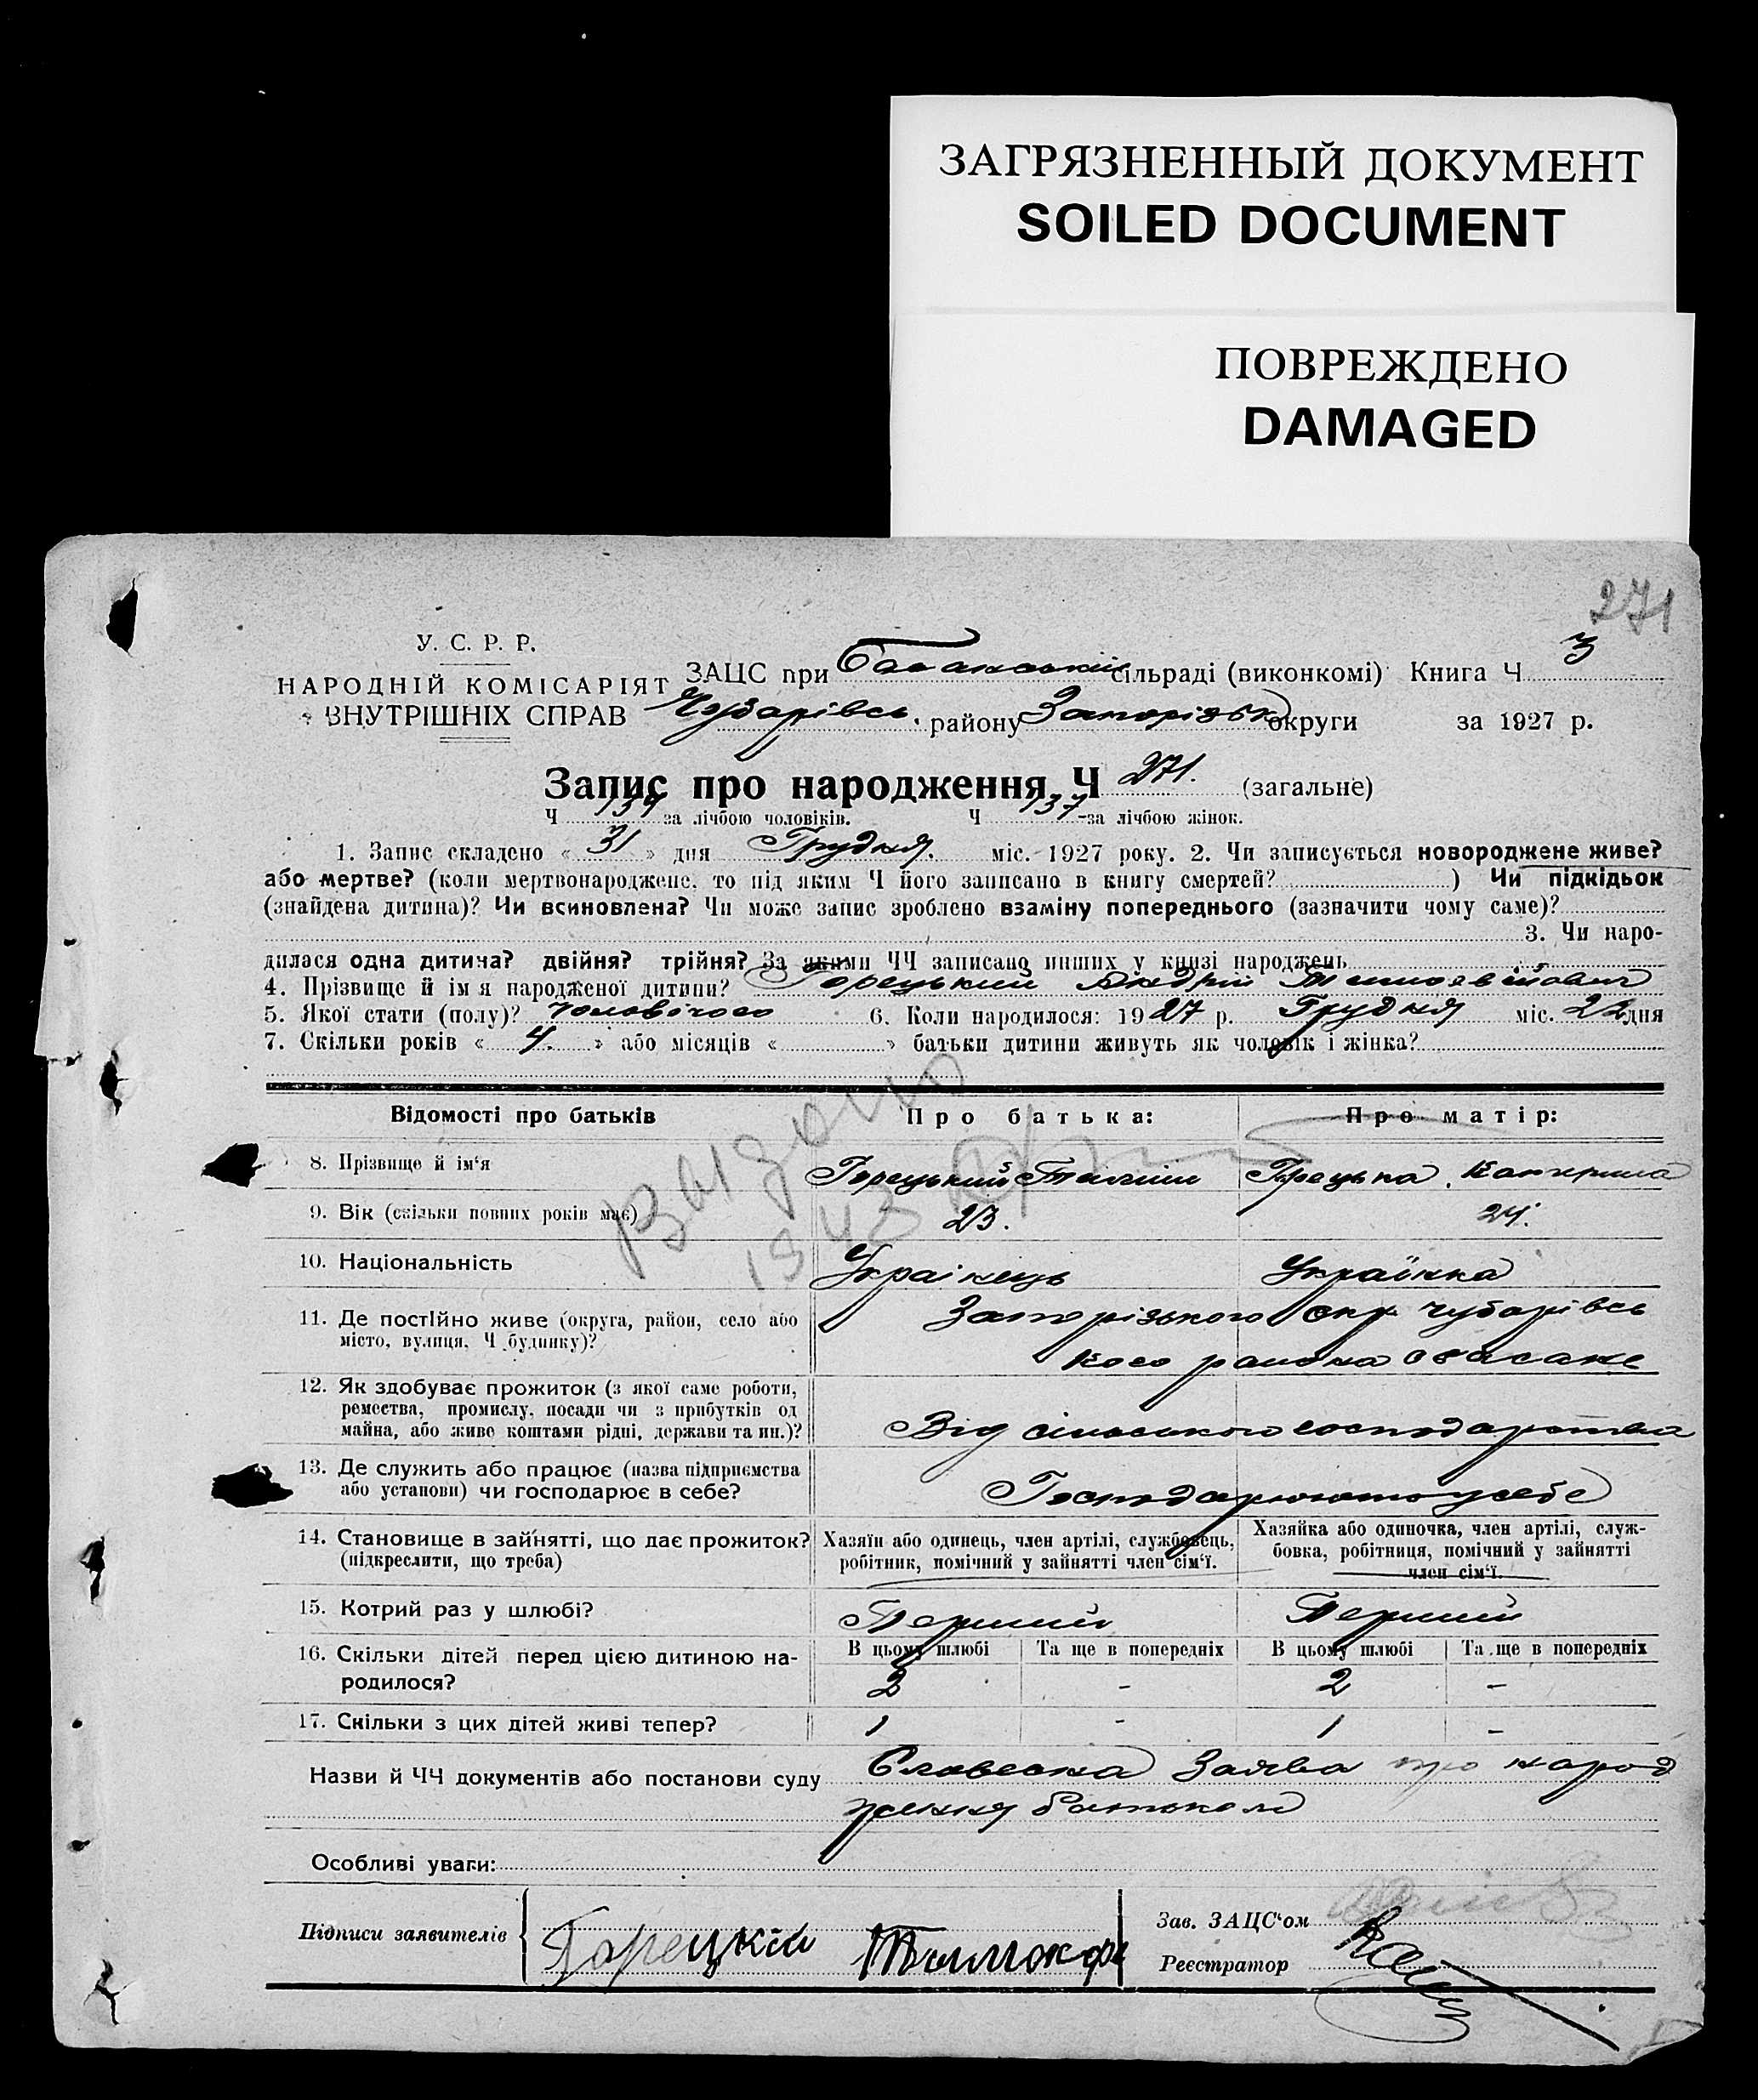 ЗАГРЯЗНЕННЫЙ ДОКУМЕНТ
SOILED DOCUMENT
ПОВРЕЖДЕНО
DAMAGED
271
У. С. Р. Р.
НАРОДНІЙ КОМІСАРІЯТ
ВНУТРІШНІХ СПРАВ
ЗАЦС при Басанській сільраді (виконкомі) Книга Ч 3
Чубарівськ. району Запорізьк округи за 1927 р.
Запис про народження Ч 271. (загальне)
Ч 134 за лічбою чоловіків. Ч 137 за лічбою жінок.
1. Запис складено « 31 » дня Грудня. міс. 1927 року. 2. Чи записується новороджене живе?
або мертве? (коли мертвонароджене, то під яким Ч його записано в книгу смертей? ) Чи підкідьок
(знайдена дитина)? Чи всиновлена? Чи може запис зроблено взаміну попереднього (зазначити чому саме)?
3. Чи наро-
дилася одна дитина? двійня? трійня? За якими ЧЧ записано инших у книзі народжень
4. Прізвище й ім'я народженої дитини? Горецький Андрій Тимофійович
5. Якої стати (полу)? Чоловічого 6. Коли народилося: 1927 р. Грудня міс. 22 дня
7. Скільки років « 4. » або місяців « » батьки дитини живуть як чоловік і жінка?
Відомості про батьків Про батька: Про матір:
8. Прізвище й ім'я Горецький Грецька. Катерина
9. Вік (скільки повних років має) 23. 24.
10. Національність Українець Українка
11. Де постійно живе (округа, район, село або
місто, вулиця, Ч будинку)?
Запорізького окр. Чубарівсь
кого района
12. Як здобуває прожиток (з якої саме роботи,
ремества, промислу, посади чи з прибутків од
майна, або живе коштами рідні, держави та ин.)?
Від сільського господарства
13. Де служить або працює (назва підприємства
або установи) чи господарює в себе?
Господарюють у себе
14. Становище в зайнятті, що дає прожиток?
(підкреслити, що треба)
Хазяїн або одинець, член артілі, службовець,
робітник, помічний у зайнятті член сім'ї.
Хазяйка або одиночка, член артілі, служ-
бовка, робітниця, помічний у зайнятті
член сім'ї.
15. Котрий раз у шлюбі? Перший Перший
16. Скільки дітей перед цією дитиною на-
родилося?
В цьому шлюбі Та ще в попередніх В цьому шлюбі Та ще в попередніх
2 - 2 -
17. Скільки з цих дітей живі тепер? 1 - 1 -
Назви й ЧЧ документів або постанови суду Словесна Заява про народ
ження батьком
Особливі уваги:
Підписи заявителів Горецкій Тимохф
Зав. ЗАЦС'ом
Реєстратор
Выдано
1943